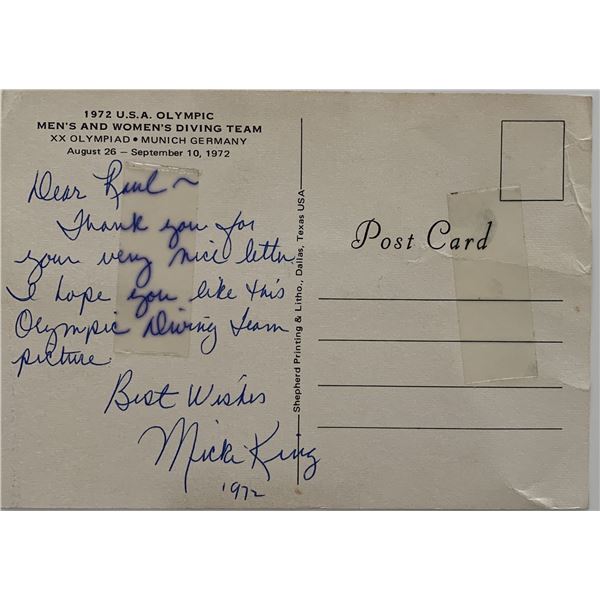 1972 U.S.A. OLYMPIC
MEN'S AND WOMEN'S DIVING TEAM
XX OLYMPIAD • MUNICH GERMANY
August 26 — September 10, 1972
Dear Raul ~
Thank you for
your very nice letter.
I hope you like this
Olympic Diving Team
picture
Best Wishes
Micki King
'972
Shepherd Printing & Litho., Dallas, Texas USA
Post Card